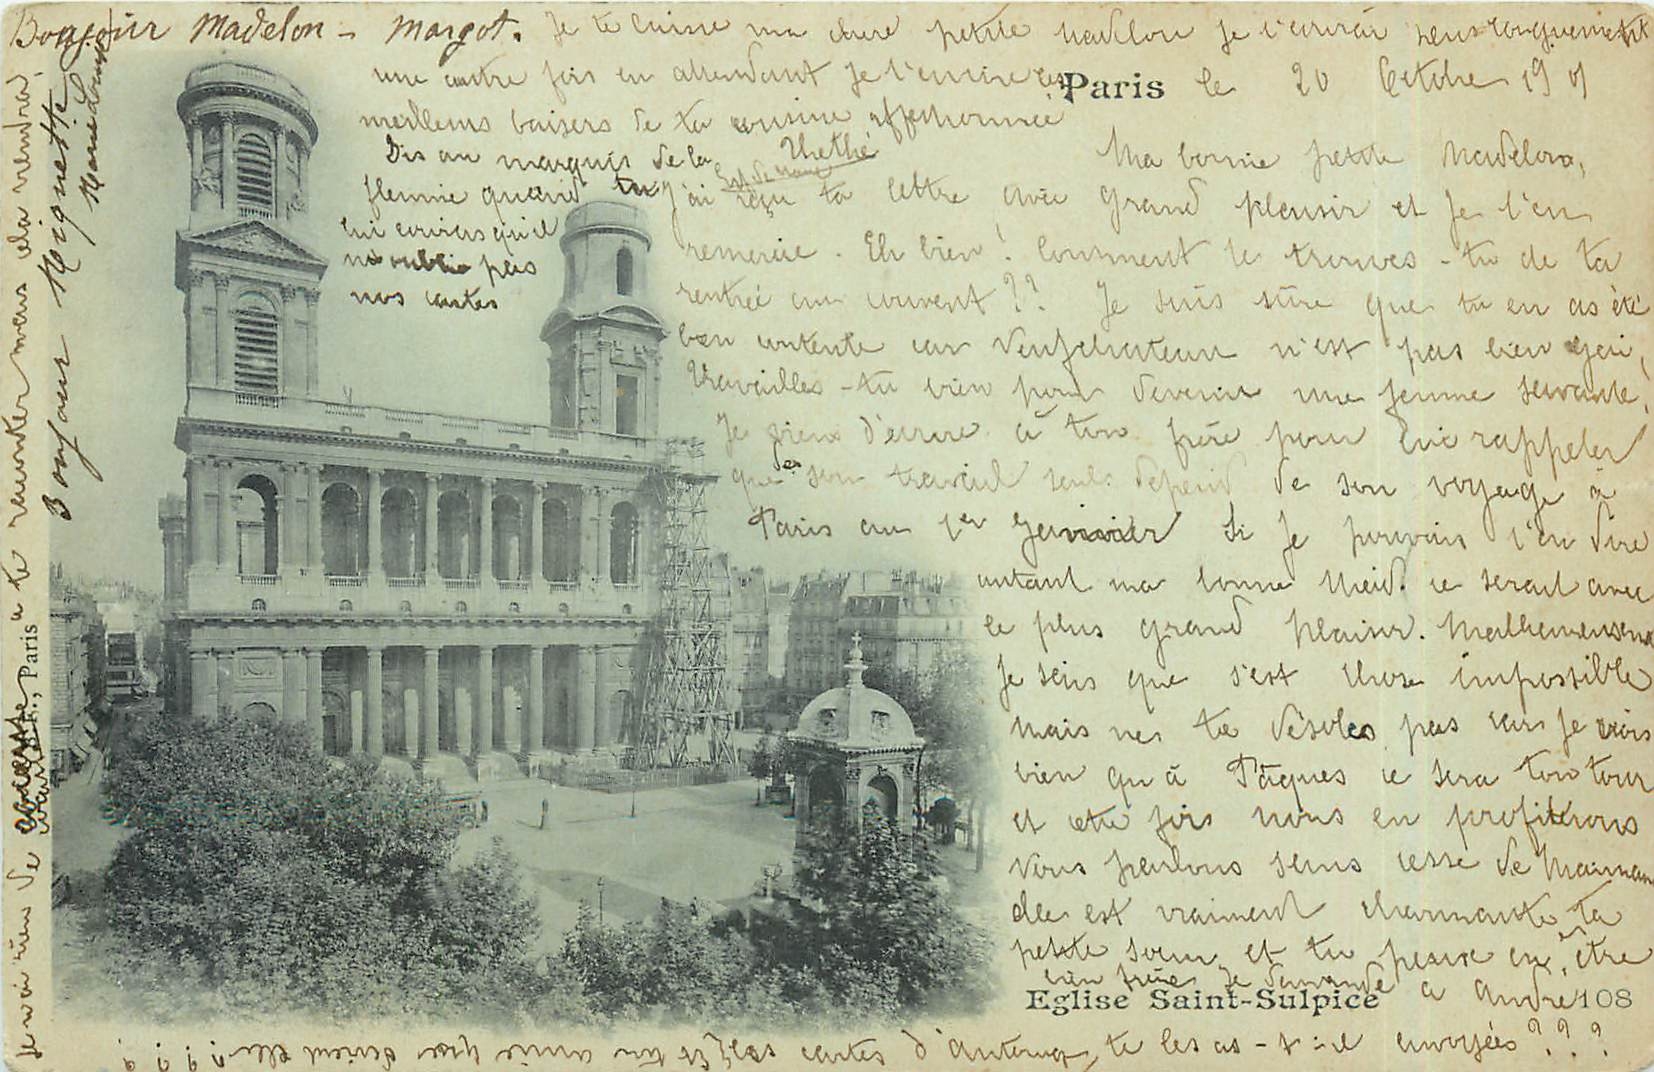 Bonjour Madelon - Margot. Je te laisse ma chère petite Madelon je t'écrirai plus longuement
une autre fois en attendant je t'envoie les
meilleurs baisers de ta cousine affectionnée
Thethé
Dis au marquis de la
flemme quand tu
lui écriras qu'il
n'oublie pas
nos cartes
Paris le 20 Octobre 1901
Ma bonne petite Madelon,
J'ai reçu ta lettre avec grand plaisir et je t'en
remercie. Eh bien! Comment te trouves-tu de ta
rentrée au couvent?? Je suis sûre que tu en as été
bien contente car Neufchateau n'est pas bien gai,
Travailles-tu bien pour devenir une femme savante,
Je viens d'écrire à ton frère pour lui rappeler
que de son travail seul dépend de son voyage à
Paris au 1er janvier Si je pouvais t'en dire
autant ma bonne ce serait avec
le plus grand plaisir. Malheureusement
je sais que c'est chose impossible
mais ne te désoles pas car je crois
bien qu'à Pâques ce sera ton tour
et cette fois nous en profiterons
Nous parlons sans cesse de Maman
elle est vraiment charmante ta
petite soeur et tu peux en être
bien fière Je demande à André
les cartes d'Auteroche, te les as-t-il envoyées???
Et ton amie que devient elle
Bonjour Mignette
Marie Louise
Je n'ai rien de à te raconter mais cela viendra.
, Paris
Eglise Saint-Sulpice
108